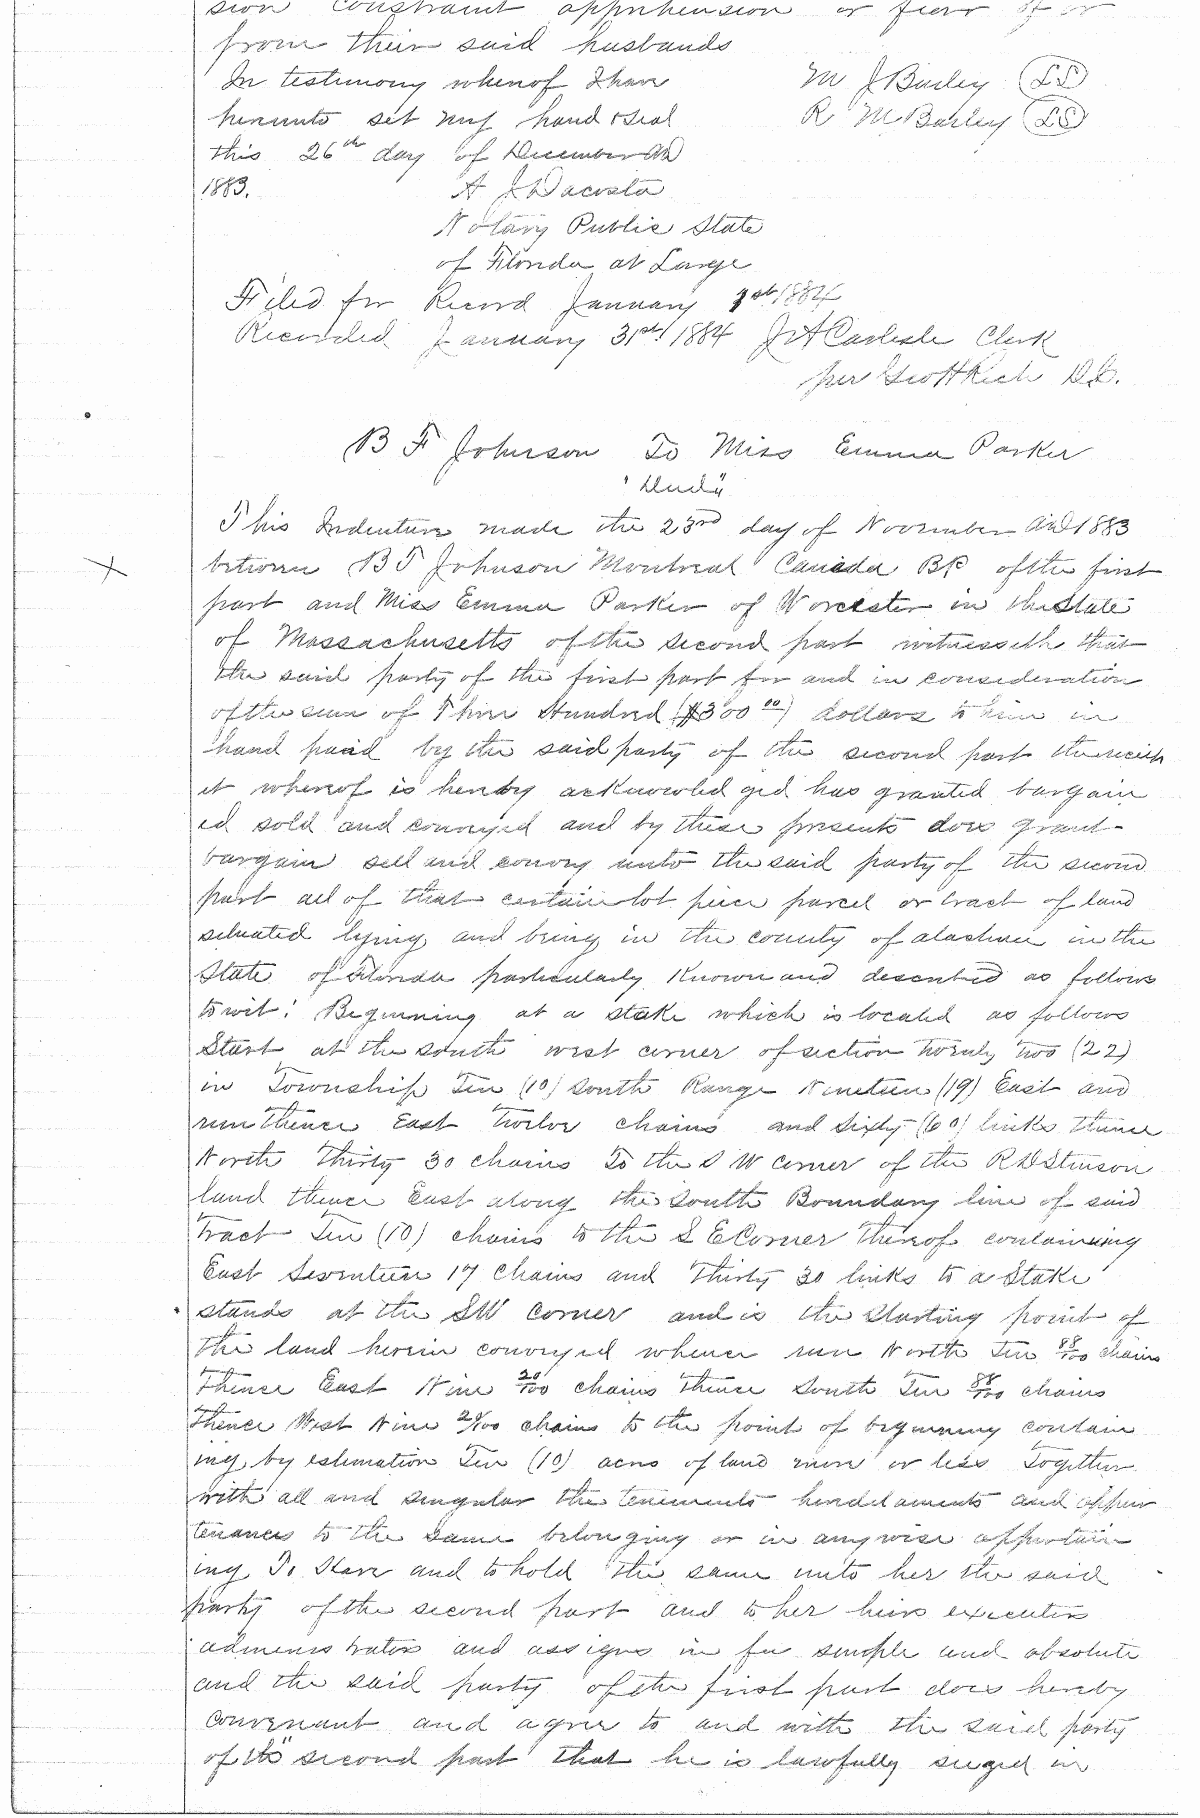 sion constraint apprehension or fear of or
from their said husbands
In testimony whereof I have
hereunto set my hand & seal
this 26th day of December AD
1883.
M J Bailey LS
R M Bailey LS
A J Dacosta
Notary Public State
of Florida at Large
Filed for Record January 1st 1884
Recorded January 31st 1884 J A Carlisle Clerk
per Geo H Rich D.C.
B F Johnson To Miss Emma Parker
"Deed"
This Indenture made the 23rd day of November AD 1883
between B F Johnson Montreal Canada of the first
part and Miss Emma Parker of Worcester in the State
of Massachusetts of the second part witnesseth that
the said party of the first part for and in consideration
of the sum of Three Hundred ($300 00) dollars to him in
hand paid by the said party of the second part the receip
it whereof is hereby acknowled ged has granted bargain
ed sold and conveyed and by these presents does grant
bargain sell and convey unto the said party of the second
part all of that certain lot piece parcel or tract of land
situated lying and being in the county of alachua in the
State of Florida particularly Known and described as follows
to wit: Beginning at a stake which is located as follows
Start at the south west corner of section twenty two (22)
in Township Ten (10) south Range Nineteen (19) East and
run thence East Twelve chains and sixty (60) links thence
North Thirty 30 chains To the S W corner of the R D Stinson
land thence East along the South Boundary line of said
Tract Ten (10) chains to the S E Corner thereof containing
East Seventeen 17 chains and Thirty 30 links to a Stake
stands at the SW corner and is the starting point of
the land herein conveyed whence run North Ten 88/100 chains
Thence East Nine 20/100 chains thence South Ten 88/100 chains
thence West Nine 20/100 chains to the point of beginning contain
ing by estimation Ten (10) acres of land more or less Together
with all and singular the tenements heredetaments and appur
tenances to the same belonging or in anywise appertain
ing To Have and to hold the same unto her the said
party of the second part and to her heirs executors
adminis trators and assigns in fee simple and absolute
and the said party of the first part does hereby
convenant and agree to and with the said party
of the second part that he is lawfully seized in